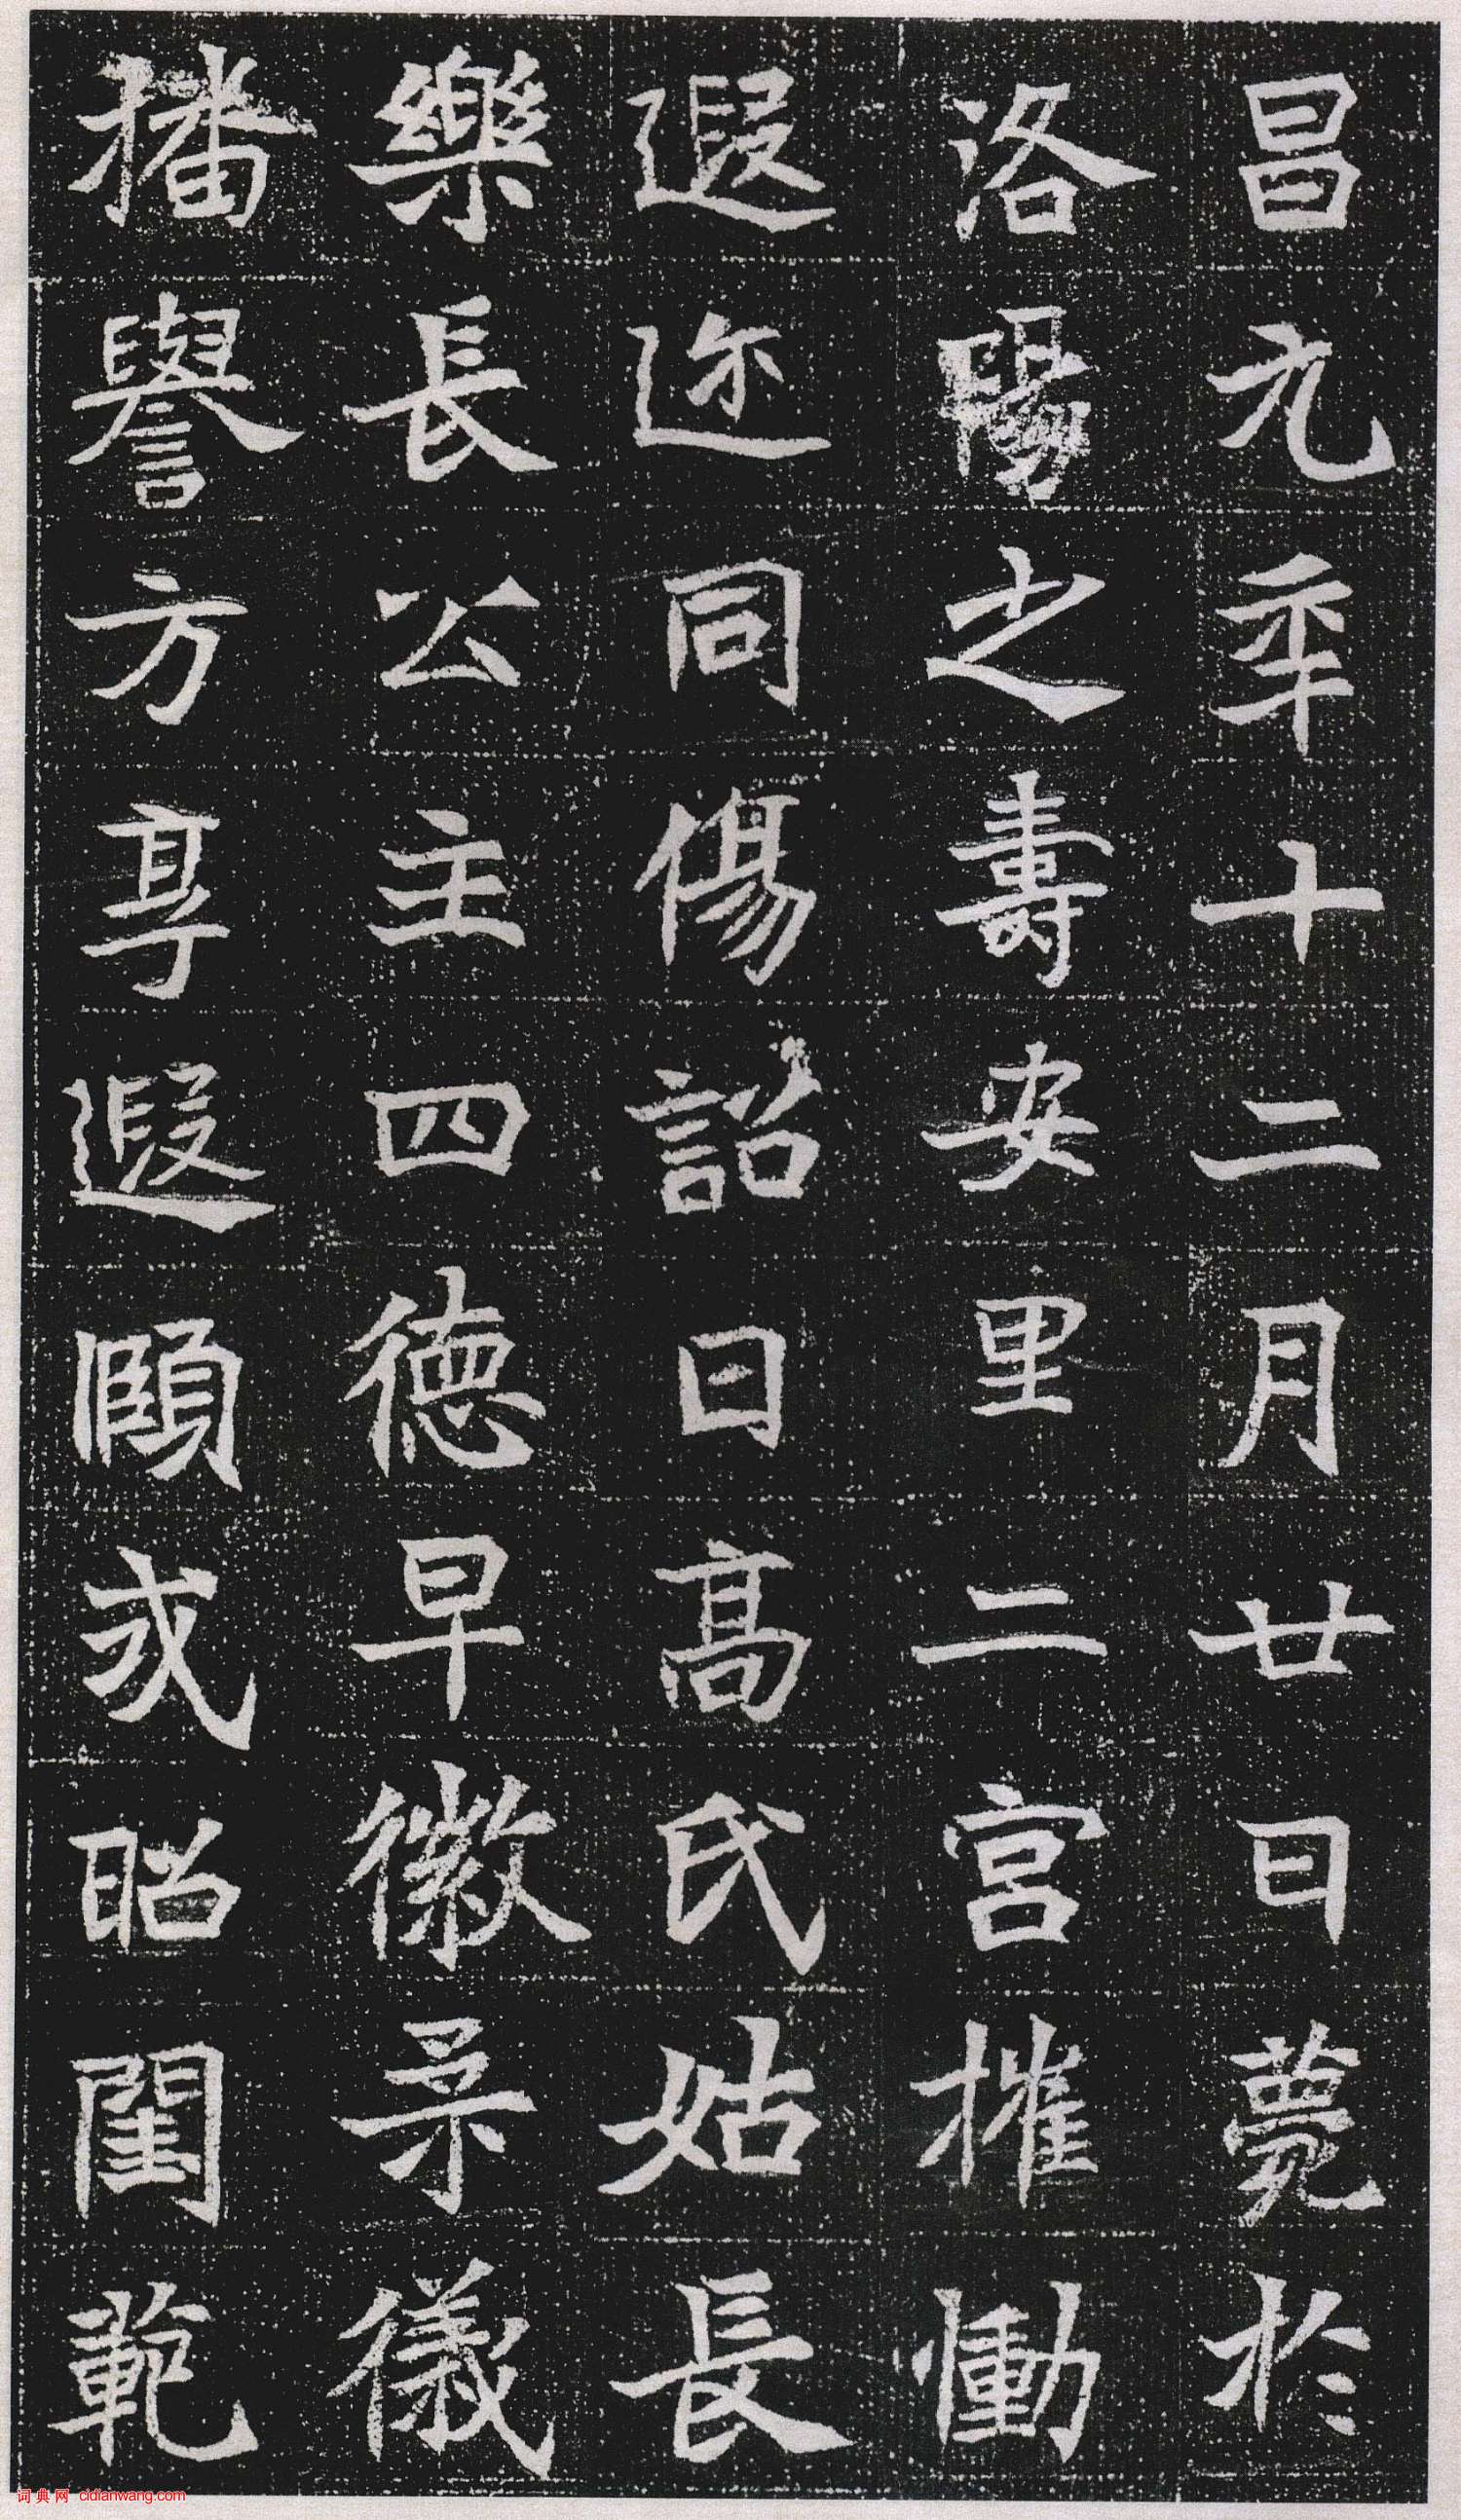 昌元年十二月廿日薨於
洛陽之壽安里二宮摧慟
遐迩同傷詔曰高氏姑長
樂長公主四德早徽柔儀
播譽方享遐頤式昭閨範
词典网 cidianwang.com